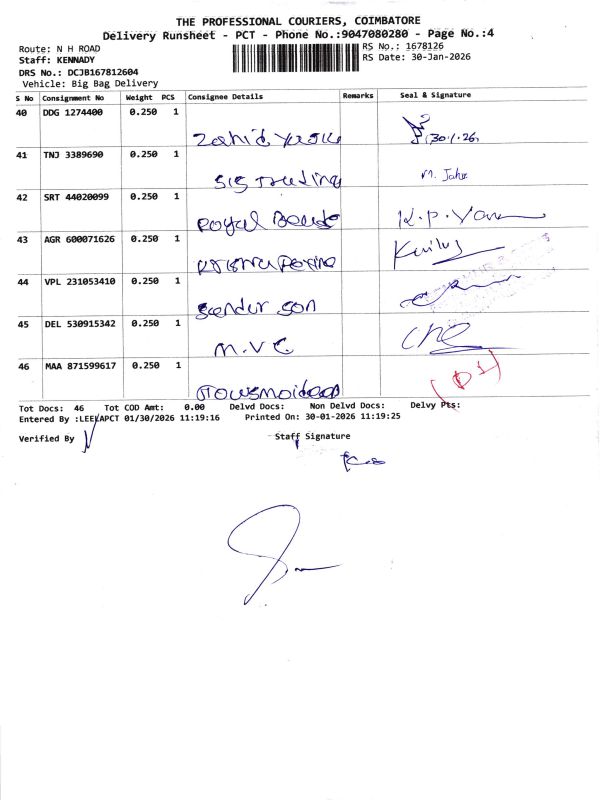 THE PROFESSIONAL COURIERS, COIMBATORE
Delivery Runsheet - PCT - Phone No.:9047080280 - Page No.:4
Route: N H ROAD RS No.: 1678126
Staff: KENNADY RS Date: 30-Jan-2026
DRS No.: DCJB167812604
Vehicle: Big Bag Delivery
S No Consignment No Weight PCS Consignee Details Remarks Seal & Signature
40 DDG 1274400 0.250 1
Zahid 30.1.26
41 TNJ 3389690 0.250 1
SIS Trading M.
42 SRT 44020099 0.250 1
Royal K.P.
43 AGR 600071626 0.250 1
44 VPL 231053410 0.250 1
Sendur Son
45 DEL 530915342 0.250 1
M.V.C
46 MAA 871599617 0.250 1
Tot Docs: 46 Tot COD Amt: 0.00 Delvd Docs: Non Delvd Docs: Delvy Pts:
Entered By :LEELAPCT 01/30/2026 11:19:16 Printed On: 30-01-2026 11:19:25
Verified By Staff Signature